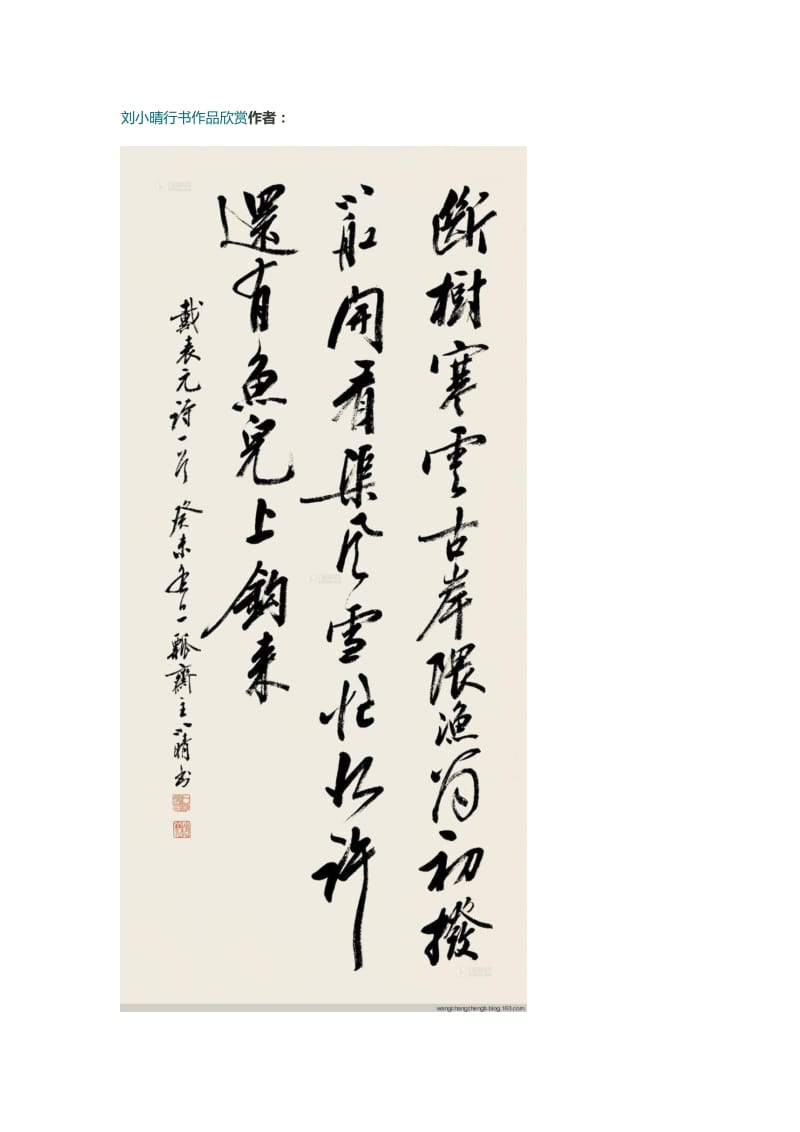 刘小晴行书作品欣赏作者：
斷樹寒雲古岸隈漁翁初撥
小船開看渠風雪忙如許
還有魚兒上鈎來
戴表元詩一首 癸未冬日一瓢齋主小晴书
wangchangchengb.blog.163.com